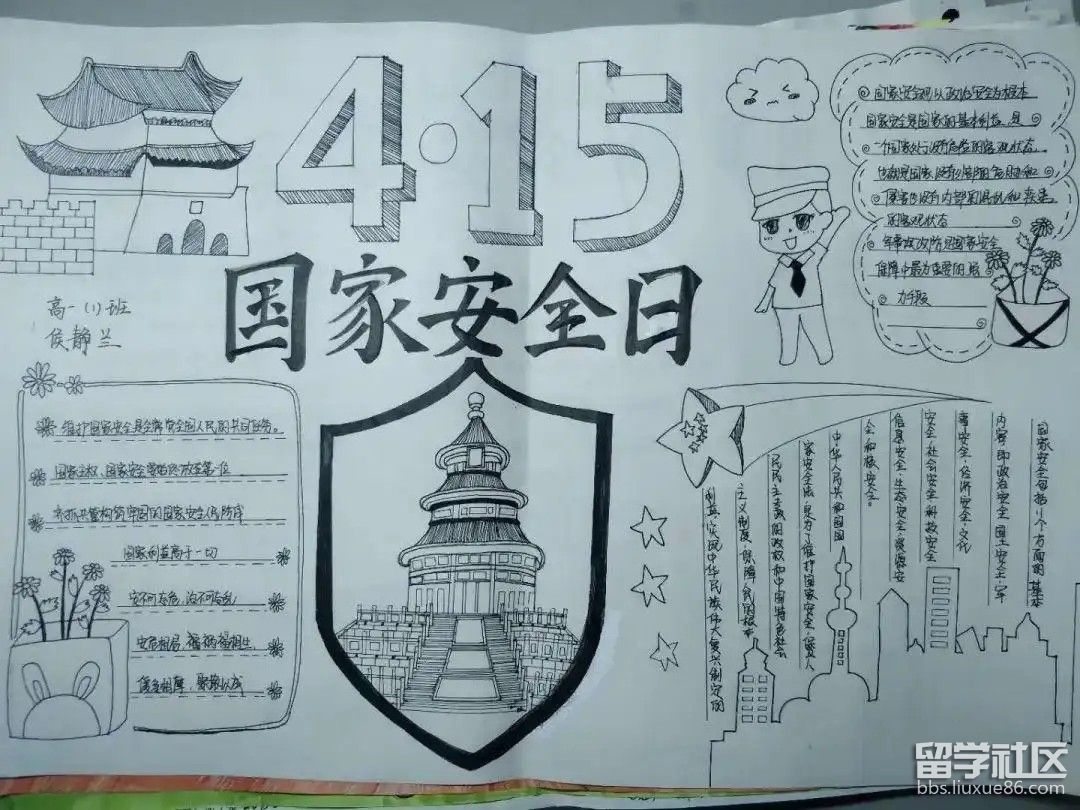 4·15
国家安全日
高一（1）班
侯静兰
国家安全观以政治安全为根本
国家安全是国家的基本利益，是
一个国家处于没有危险的客观状态，
也就是国家没有外部的威胁和
侵害也没有内部的混乱和疾患
的客观状态
国家安全
保障中最为重要的
力
维护国家安全是全国人民的共同任务。
国家主权、国家安全要始终放在第一位
齐抓共管构筑牢固的国家安全人民防线
国家利益高于一切
安不可忘危，治不可忘乱
安危相易，福祸相生，
缓急相摩，聚散以成
国家安全包括11个方面的基本
内容即政治安全·国土安全·军
事安全·经济安全·文化
安全·社会安全·科技安全
信息安全·生态安全·资源安
全和核安全。
中华人民共和国国
家安全法，是为了维护国家安全，保卫人
民民主专政的政权和中国特色社会
主义制度，保障人民的根本
利益，实现中华民族伟大复兴制定的
留学社区
bbs.liuxue86.com